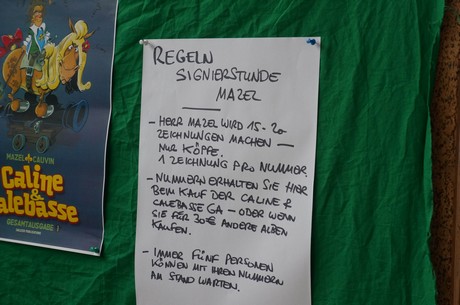 MAZEL CAUVIN
Caline
&
Calebasse
GESAMTAUSGABE 1
REGELN
SIGNIERSTUNDE
MAZEL
- HERR MAZEL WIRD 15-20
ZEICHNUNGEN MACHEN -
NUR KÖPFE.
1 ZEICHNUNG PRO NUMMER.
- NUMMERN ERHALTEN SIE HIER
BEIM KAUF DER CALINE &
CALEBASSE GA - ODER WENN
SIE FÜR 30€ ANDERE ALBEN
KAUFEN.
- IMMER FÜNF PERSONEN
KÖNNEN MIT IHREN NUMMERN
AM STAND WARTEN.